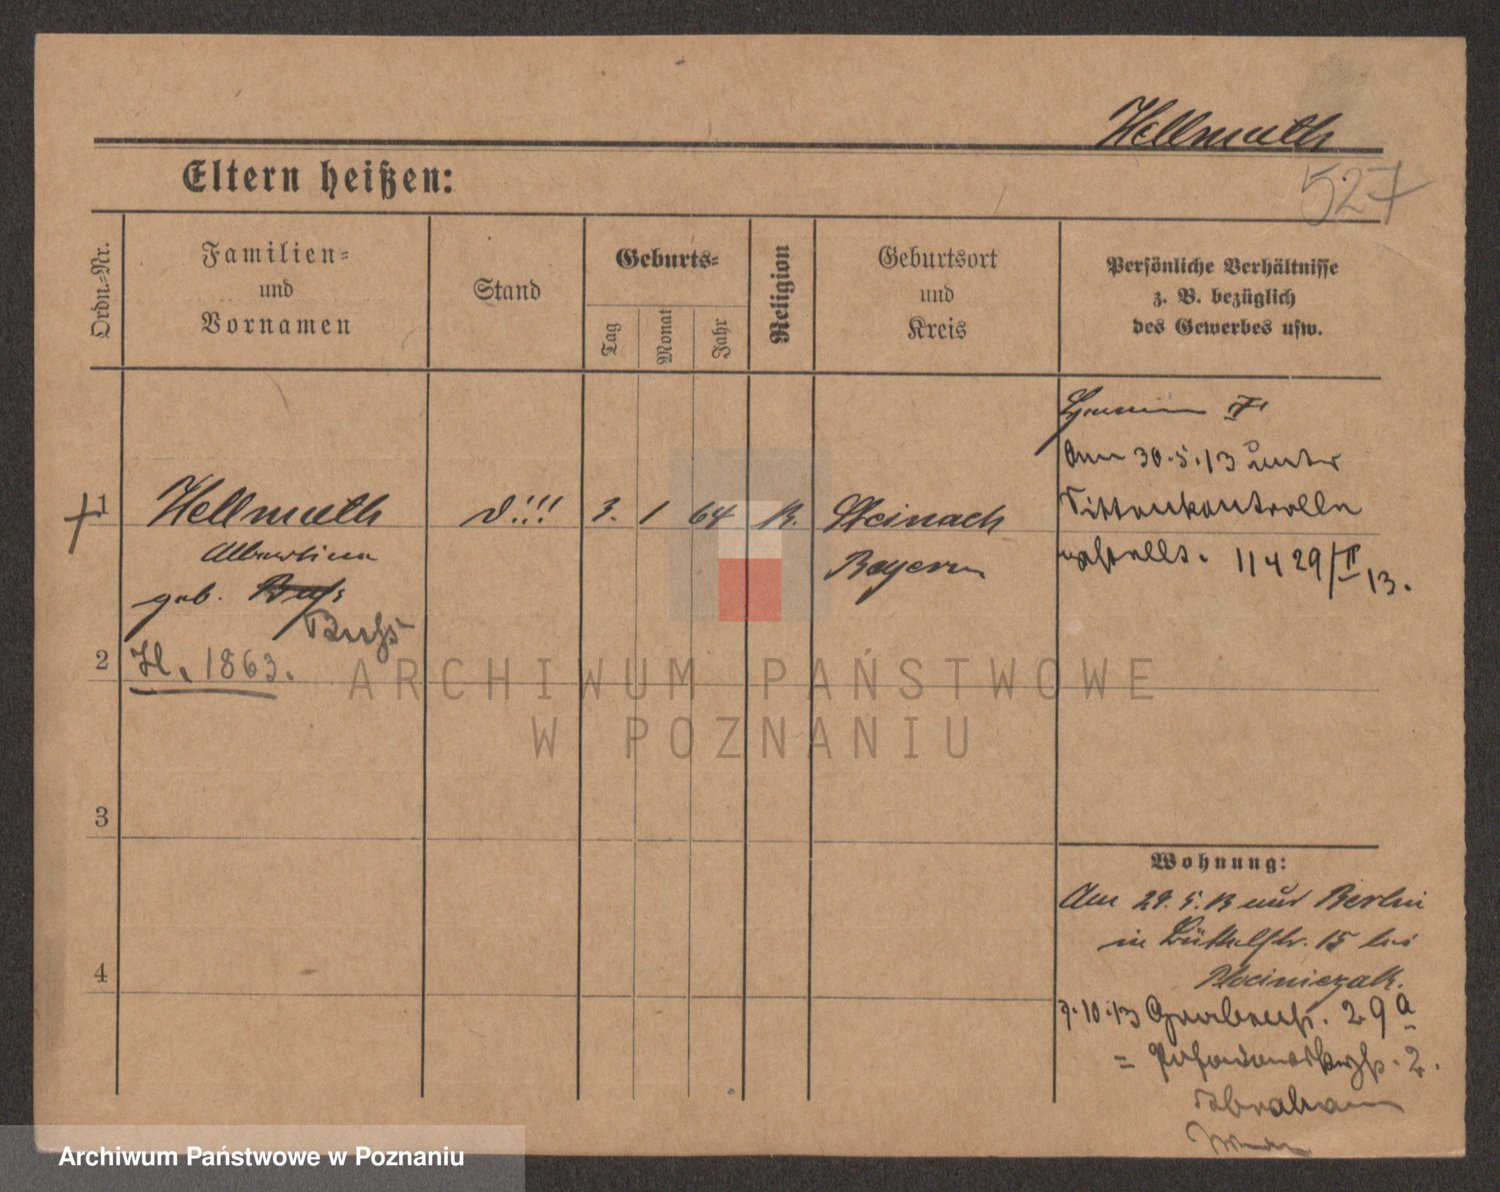 Hellmuth
527
Eltern heißen:
Ordn.-Nr.
Familien-
und
Vornamen
Stand
Geburts-
Tag
Monat
Jahr
Religion
Geburtsort
und
Kreis
Persönliche Verhältnisse
z. B. bezüglich
des Gewerbes usw.
1
Hellmuth
Albertine
geb.
Buchs
H. 1863.
d!!!
3. 1 64 K.
Steinach
Bayern
Am 30.5.13 unter
Sittenkontrolle
gestellt. 11429/II 13.
2
3
4
Wohnung:
Am 29.5.13 aus Berlin
in Büttelstr. 15 bei
9.10.13 Grabenstr. 29a
2.
Abraham
ARCHIWUM PAŃSTWOWE
W POZNANIU
Archiwum Państwowe w Poznaniu